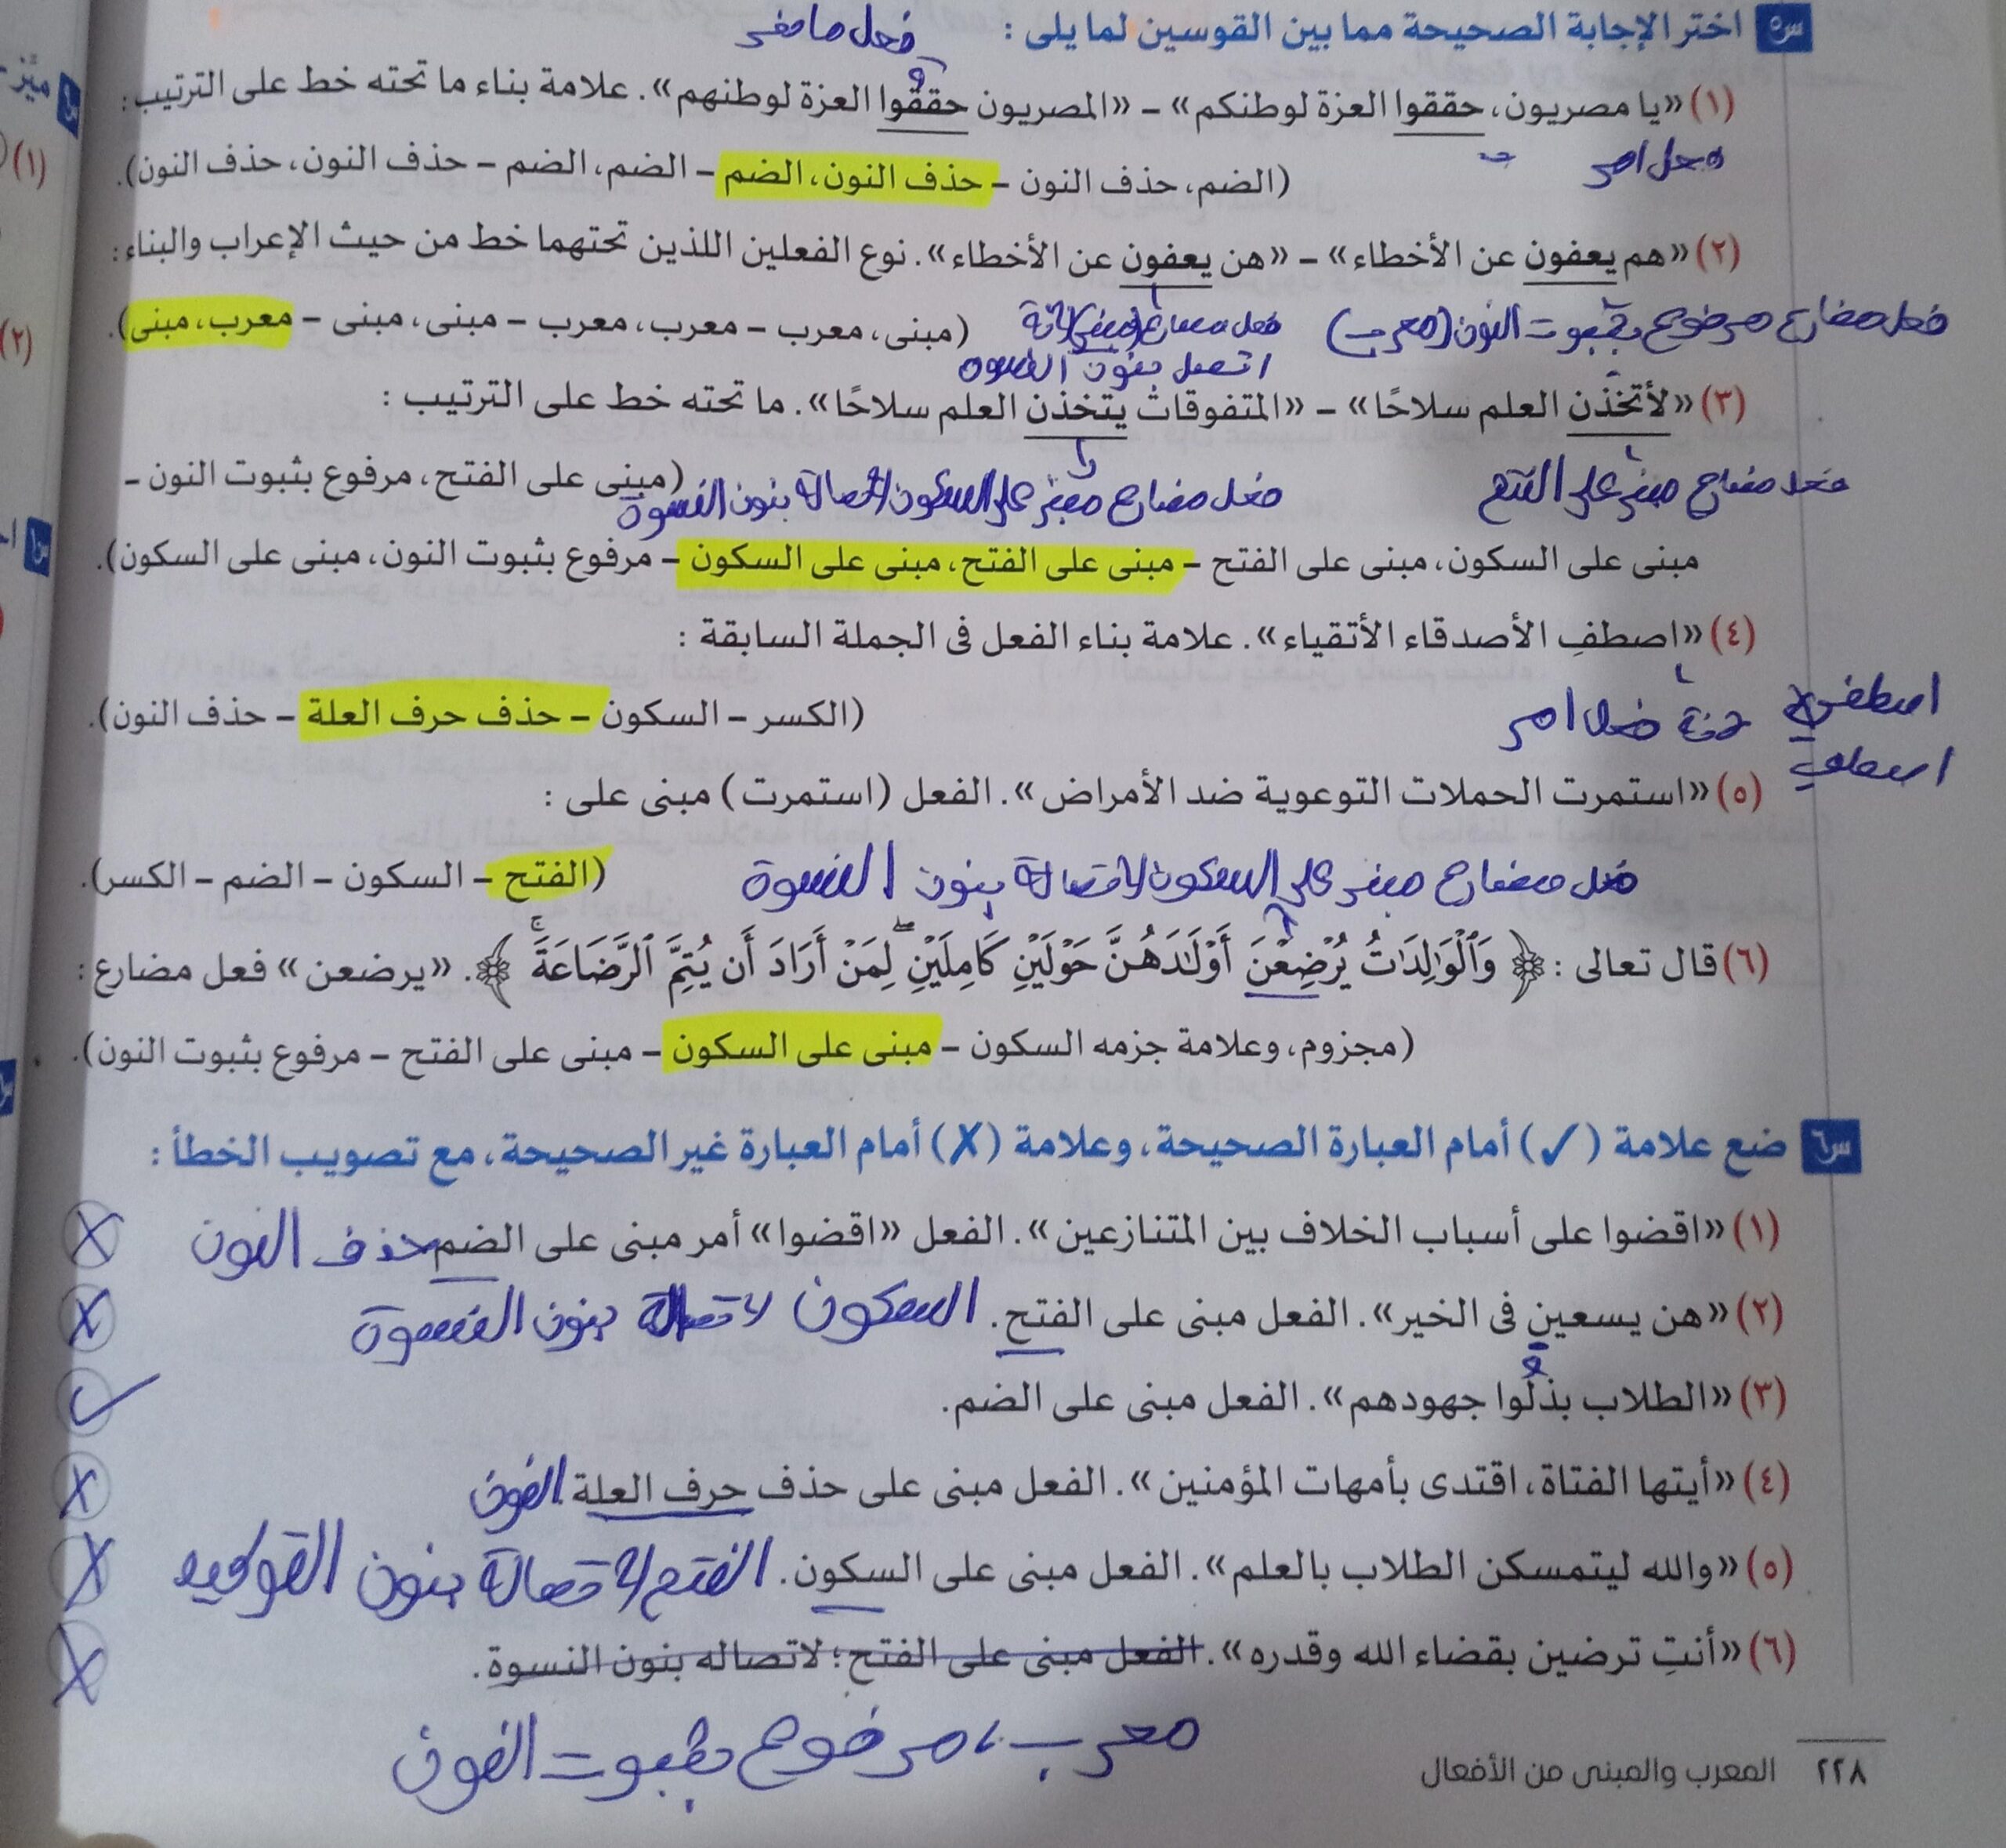 س٥ اختر الإجابة الصحيحة مما بين القوسين لما يلى :
فعل ماضى
(١) «يا مصريون، حققوا العزة لوطنكم» – «المصريون حققُوا العزة لوطنهم». علامة بناء ما تحته خط على الترتيب:
فعل امر
(الضم، حذف النون – حذف النون، الضم – الضم، الضم – حذف النون، حذف النون).
(٢) «هم يعفون عن الأخطاء» – «هن يعفون عن الأخطاء». نوع الفعلين اللذين تحتهما خط من حيث الإعراب والبناء:
فعل مضارع مرفوع بثبوت النون (معرب)
فعل مضارع (مبنى) لانة
اتصل بنون النسوة
(مبنى، معرب – معرب، معرب – مبنى، مبنى – معرب، مبنى).
(٣) «لأتخذن العلم سلاحًا» – «المتفوقاتُ يتخذن العلم سلاحًا». ما تحته خط على الترتيب :
فعل مضارع مبنى على الفتح
فعل مضارع مبنى على السكون لاتصالة بنون النسوة
(مبنى على الفتح، مرفوع بثبوت النون –
مبنى على السكون، مبنى على الفتح – مبنى على الفتح، مبنى على السكون – مرفوع بثبوت النون، مبنى على السكون).
(٤) «اصطفِ الأصدقاء الأتقياء». علامة بناء الفعل فى الجملة السابقة :
فعل امر
اصطفى
اصطفِ
(الكسر – السكون – حذف حرف العلة – حذف النون).
(٥) «استمرت الحملات التوعوية ضد الأمراض». الفعل (استمرت) مبنى على :
(الفتح – السكون – الضم – الكسر).
فعل مضارع مبنى على السكون لاتصالة بنون النسوة
(٦) قال تعالى : ﴿ وَٱلْوَٰلِدَٰتُ يُرْضِعْنَ أَوْلَٰدَهُنَّ حَوْلَيْنِ كَامِلَيْنِ ۖ لِمَنْ أَرَادَ أَن يُتِمَّ ٱلرَّضَاعَةَ ۚ ﴾. «يرضعن» فعل مضارع :
(مجزوم، وعلامة جزمه السكون – مبنى على السكون – مبنى على الفتح – مرفوع بثبوت النون).
س٦ ضع علامة (✓) أمام العبارة الصحيحة، وعلامة (✗) أمام العبارة غير الصحيحة، مع تصويب الخطأ :
(١) «اقضوا على أسباب الخلاف بين المتنازعين». الفعل «اقضوا» أمر مبنى على الضم حذف النون X
(٢) «هن يسعين فى الخير». الفعل مبنى على الفتح. السكون لاتصالة بنون النسوة X
(٣) «الطلاب بذلُوا جهودهم». الفعل مبنى على الضم. ✓
(٤) «أيتها الفتاة، اقتدى بأمهات المؤمنين». الفعل مبنى على حذف حرف العلة. النون X
(٥) «والله ليتمسكن الطلاب بالعلم». الفعل مبنى على السكون. الفتح لاتصالة بنون التوكيد X
(٦) «أنتِ ترضين بقضاء الله وقدره». الفعل مبنى على الفتح؛ لاتصاله بنون النسوة. X
معرب، مرفوع بثبوت النون
٢٢٨ المعرب والمبنى من الأفعال
ميّز
(١)
(٢)